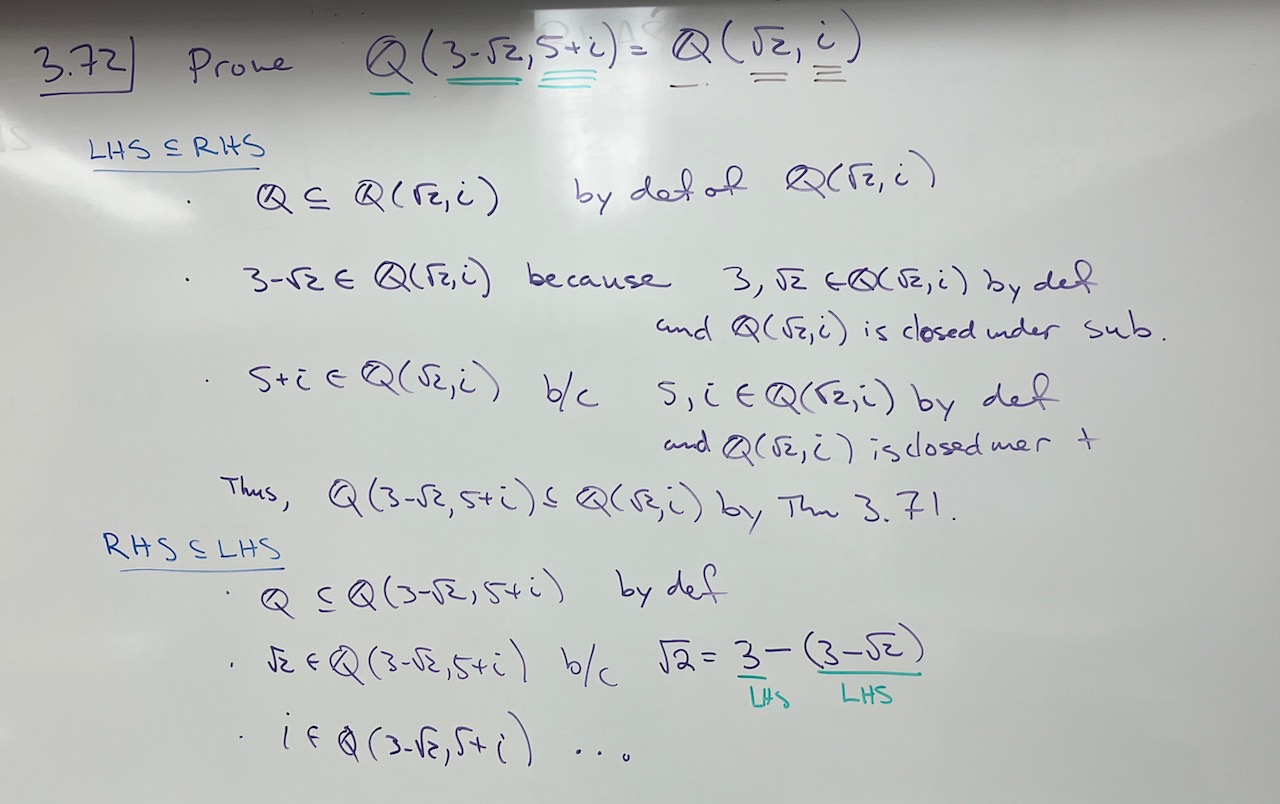 3.72 Prove ℚ(3-√2, 5+i) = ℚ(√2, i)
LHS ⊆ RHS
· ℚ ⊆ ℚ(√2, i) by def of ℚ(√2, i)
· 3-√2 ∈ ℚ(√2, i) because 3, √2 ∈ ℚ(√2, i) by def
and ℚ(√2, i) is closed under sub.
· 5+i ∈ ℚ(√2, i) b/c 5, i ∈ ℚ(√2, i) by def
and ℚ(√2, i) is closed +
Thus, ℚ(3-√2, 5+i) ⊆ ℚ(√2, i) by Thm 3.71.
RHS ⊆ LHS
· ℚ ⊆ ℚ(3-√2, 5+i) by def
· √2 ∈ ℚ(3-√2, 5+i) b/c √2 = 3 - (3-√2)
LHS LHS
· i ∈ ℚ(3-√2, 5+i) ...